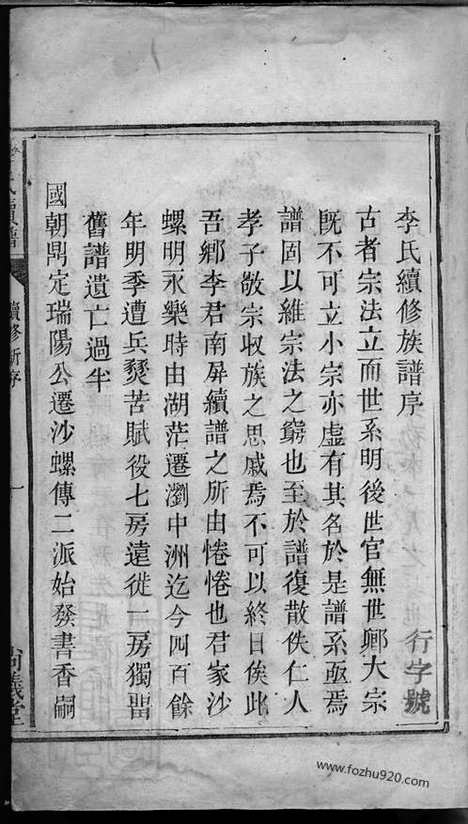 李氏續修族譜序
行字號
古者宗法立而世系明後世官無世卿大宗
既不可立小宗亦虛有其名於是譜系亟焉
譜固以維宗法之窮也至於譜復散佚仁人
孝子敬宗收族之思戚焉不可以終日俟此
吾鄉李君南屏續譜之所由惓惓也君家沙
螺明永樂時由湖茫遷瀏中洲迄今四百餘
年明季遭兵燹苦賦役七房遠徙一房獨畱
舊譜遺亡過半
國朝鼎定瑞陽公遷沙螺傳二派始發書香嗣
氏續譜
續修新序
一
尚義堂
www.fozhu920.com